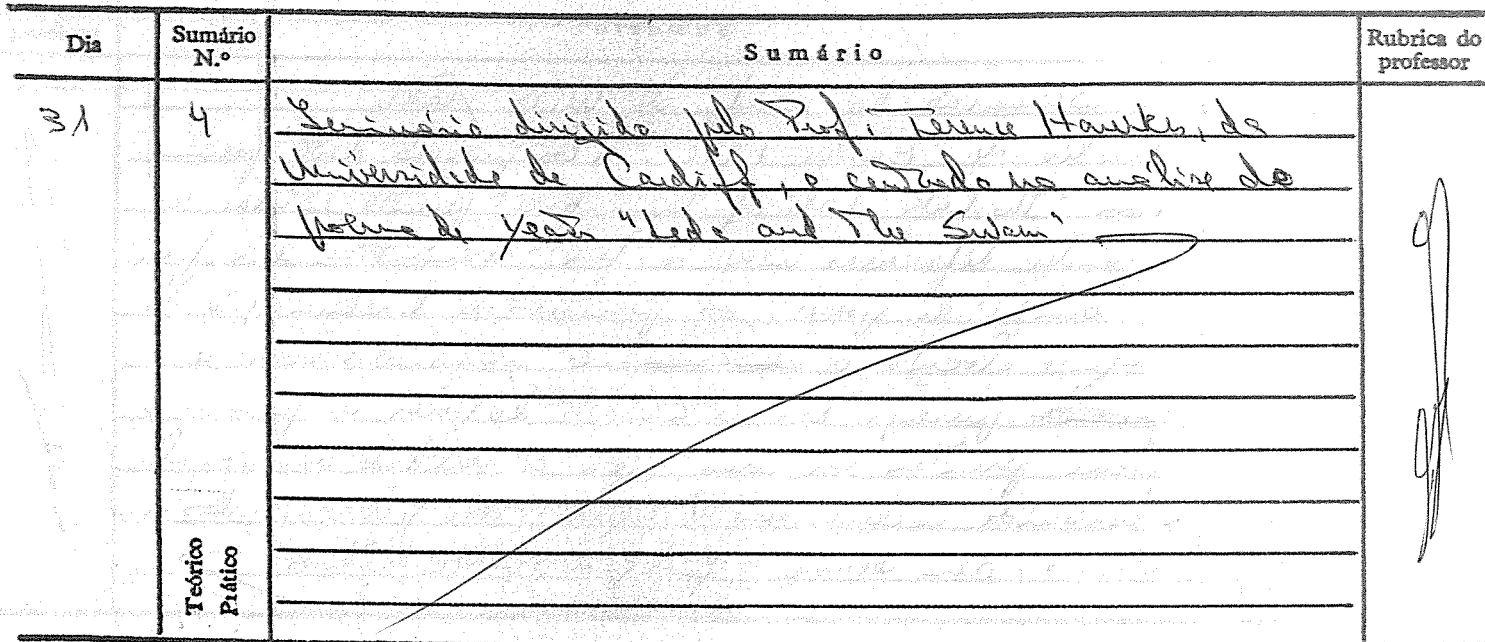 Dia
Sumário N.º
Sumário
Rubrica do professor
31
4
Seminário dirigido pelo Prof. Terence Hawkes, da
Universidade de Cardiff, e centrado na análise do
poema de Yeats "Leda and The Swan"
Teórico
Prático